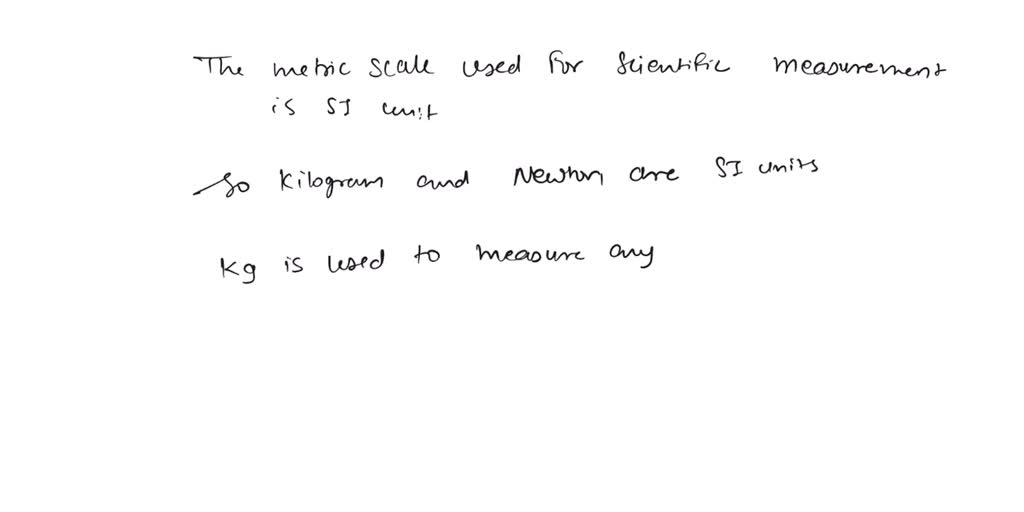 The metric scale used for scientific measurement
is SI unit
So Kilogram and Newton are SI units
Kg is used to measure any